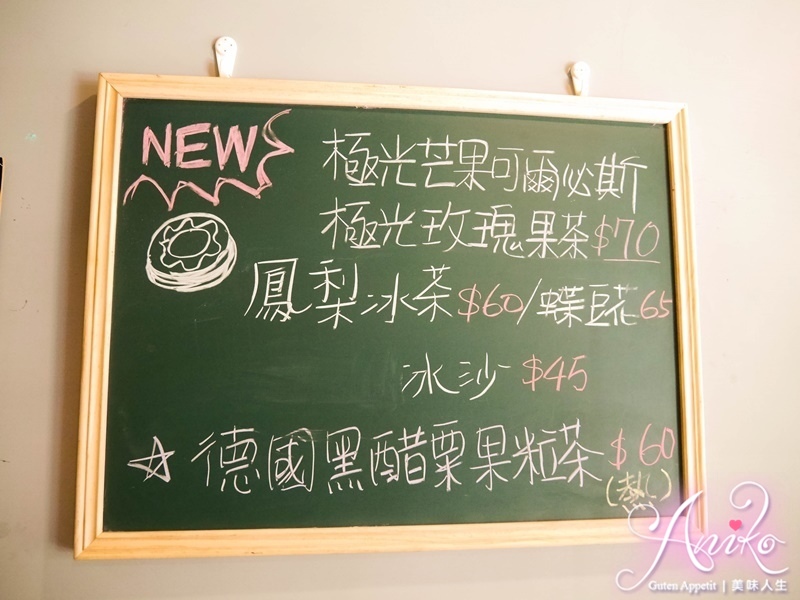 NEW
極光芒果可爾必斯
極光玫瑰果茶$70
鳳梨冰茶$60/蝶豆花65
冰沙$45
☆德國黑醋栗果粒茶$60
(熱)
Aniko
Guten Appetit | 美味人生